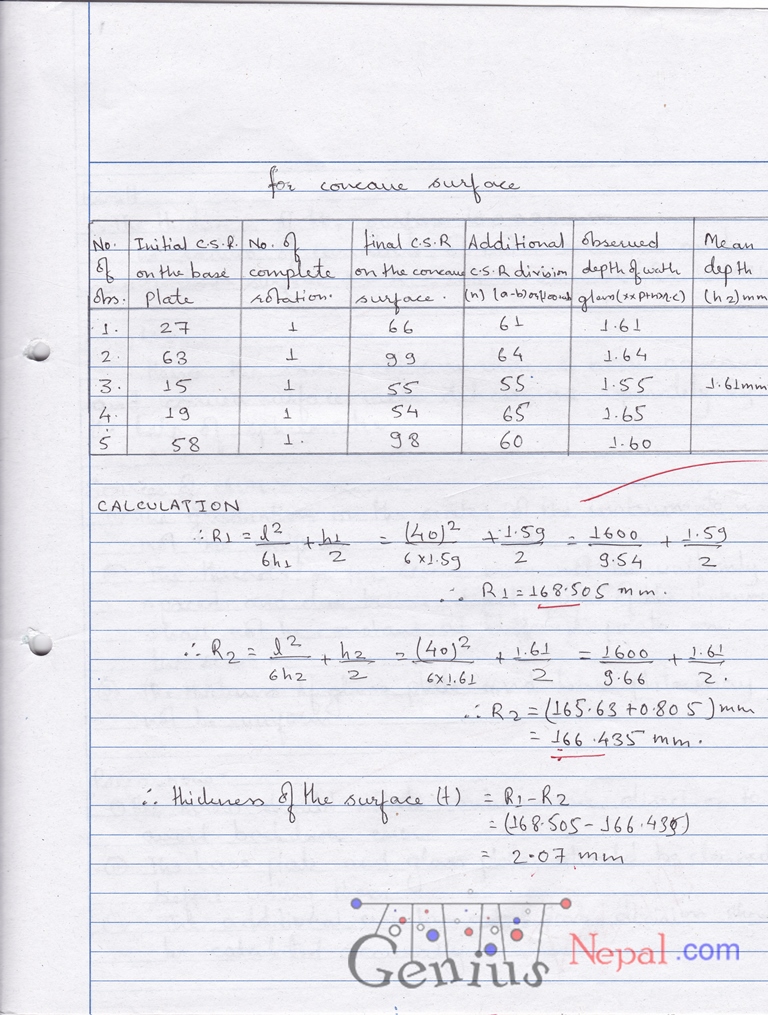 for concave surface
No. of obs. | Initial C.S.R. on the base Plate | No. of complete rotation. | final C.S.R on the concave surface. | Additional C.S.R division (n) (a-b) or | observed depth of watch glass | Mean depth (h2) mm
1. | 27 | 1 | 66 | 61 | 1.61
2. | 63 | 1 | 99 | 64 | 1.64
3. | 15 | 1 | 55 | 55 | 1.55 | 1.61mm
4. | 19 | 1 | 54 | 65 | 1.65
5 | 58 | 1. | 98 | 60 | 1.60
CALCULATION
∴ R1 = l²/6h1 + h1/2 = (40)²/6×1.59 + 1.59/2 = 1600/9.54 + 1.59/2
∴ R1 = 168.505 mm.
∴ R2 = l²/6h2 + h2/2 = (40)²/6×1.61 + 1.61/2 = 1600/9.66 + 1.61/2.
∴ R2 = (165.63+0.805) mm
= 166.435 mm.
∴ thickness of the surface (t) = R1-R2
= (168.505 - 166.435)
= 2.07 mm
Genius Nepal.com